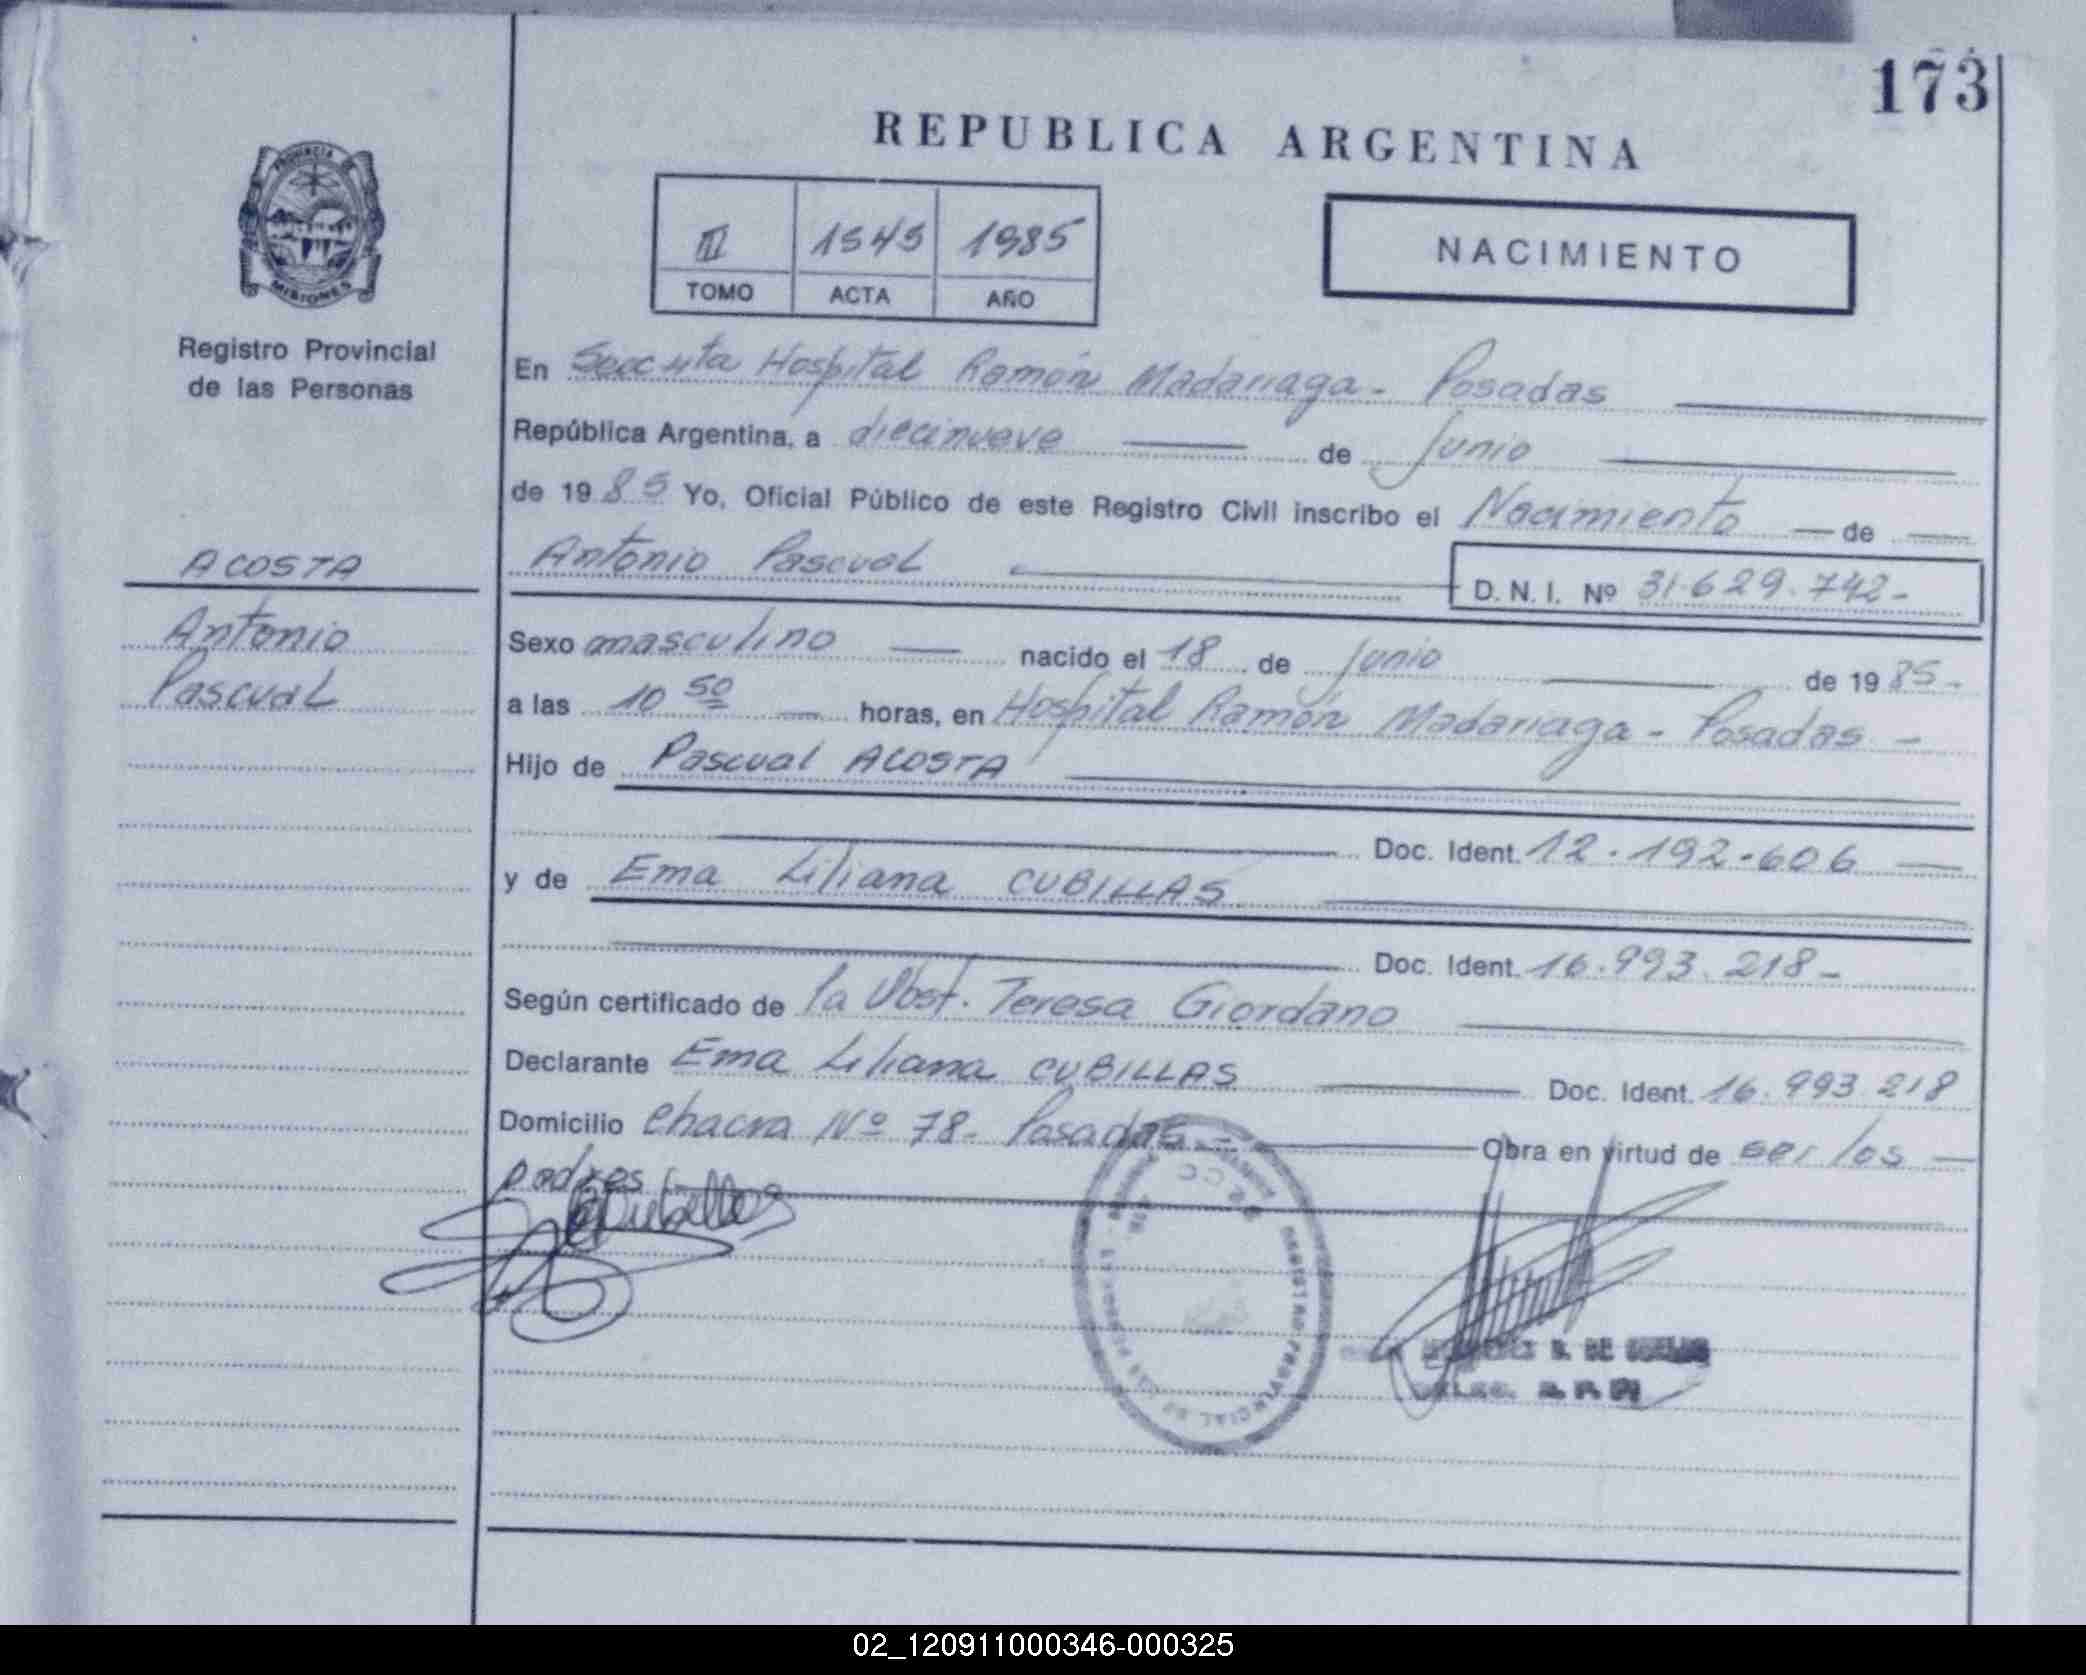 173
REPUBLICA ARGENTINA
PROVINCIA DE
MISIONES
Registro Provincial
de las Personas
III 1545 1985
TOMO ACTA AÑO
NACIMIENTO
En Secc 4ta Hospital Ramón Madariaga - Posadas
República Argentina, a diecinueve de Junio
de 1985 Yo, Oficial Público de este Registro Civil inscribo el Nacimiento de
Antonio Pascual D.N.I. Nº 31.629.742-
ACOSTA
Antonio
Pascual
Sexo masculino nacido el 18 de Junio de 1985-
a las 10 50 horas, en Hospital Ramón Madariaga - Posadas -
Hijo de Pascual ACOSTA
Doc. Ident. 12.192.606
y de Ema Liliana CUBILLAS
Doc. Ident. 16.993.218-
Según certificado de la Obst. Teresa Giordano
Declarante Ema Liliana CUBILLAS Doc. Ident. 16.993.218
Domicilio Chacra Nº 78- Posadas - Obra en virtud de ser los
padres
REGISTRO PROVINCIAL DE LAS PERSONAS
02_120911000346-000325